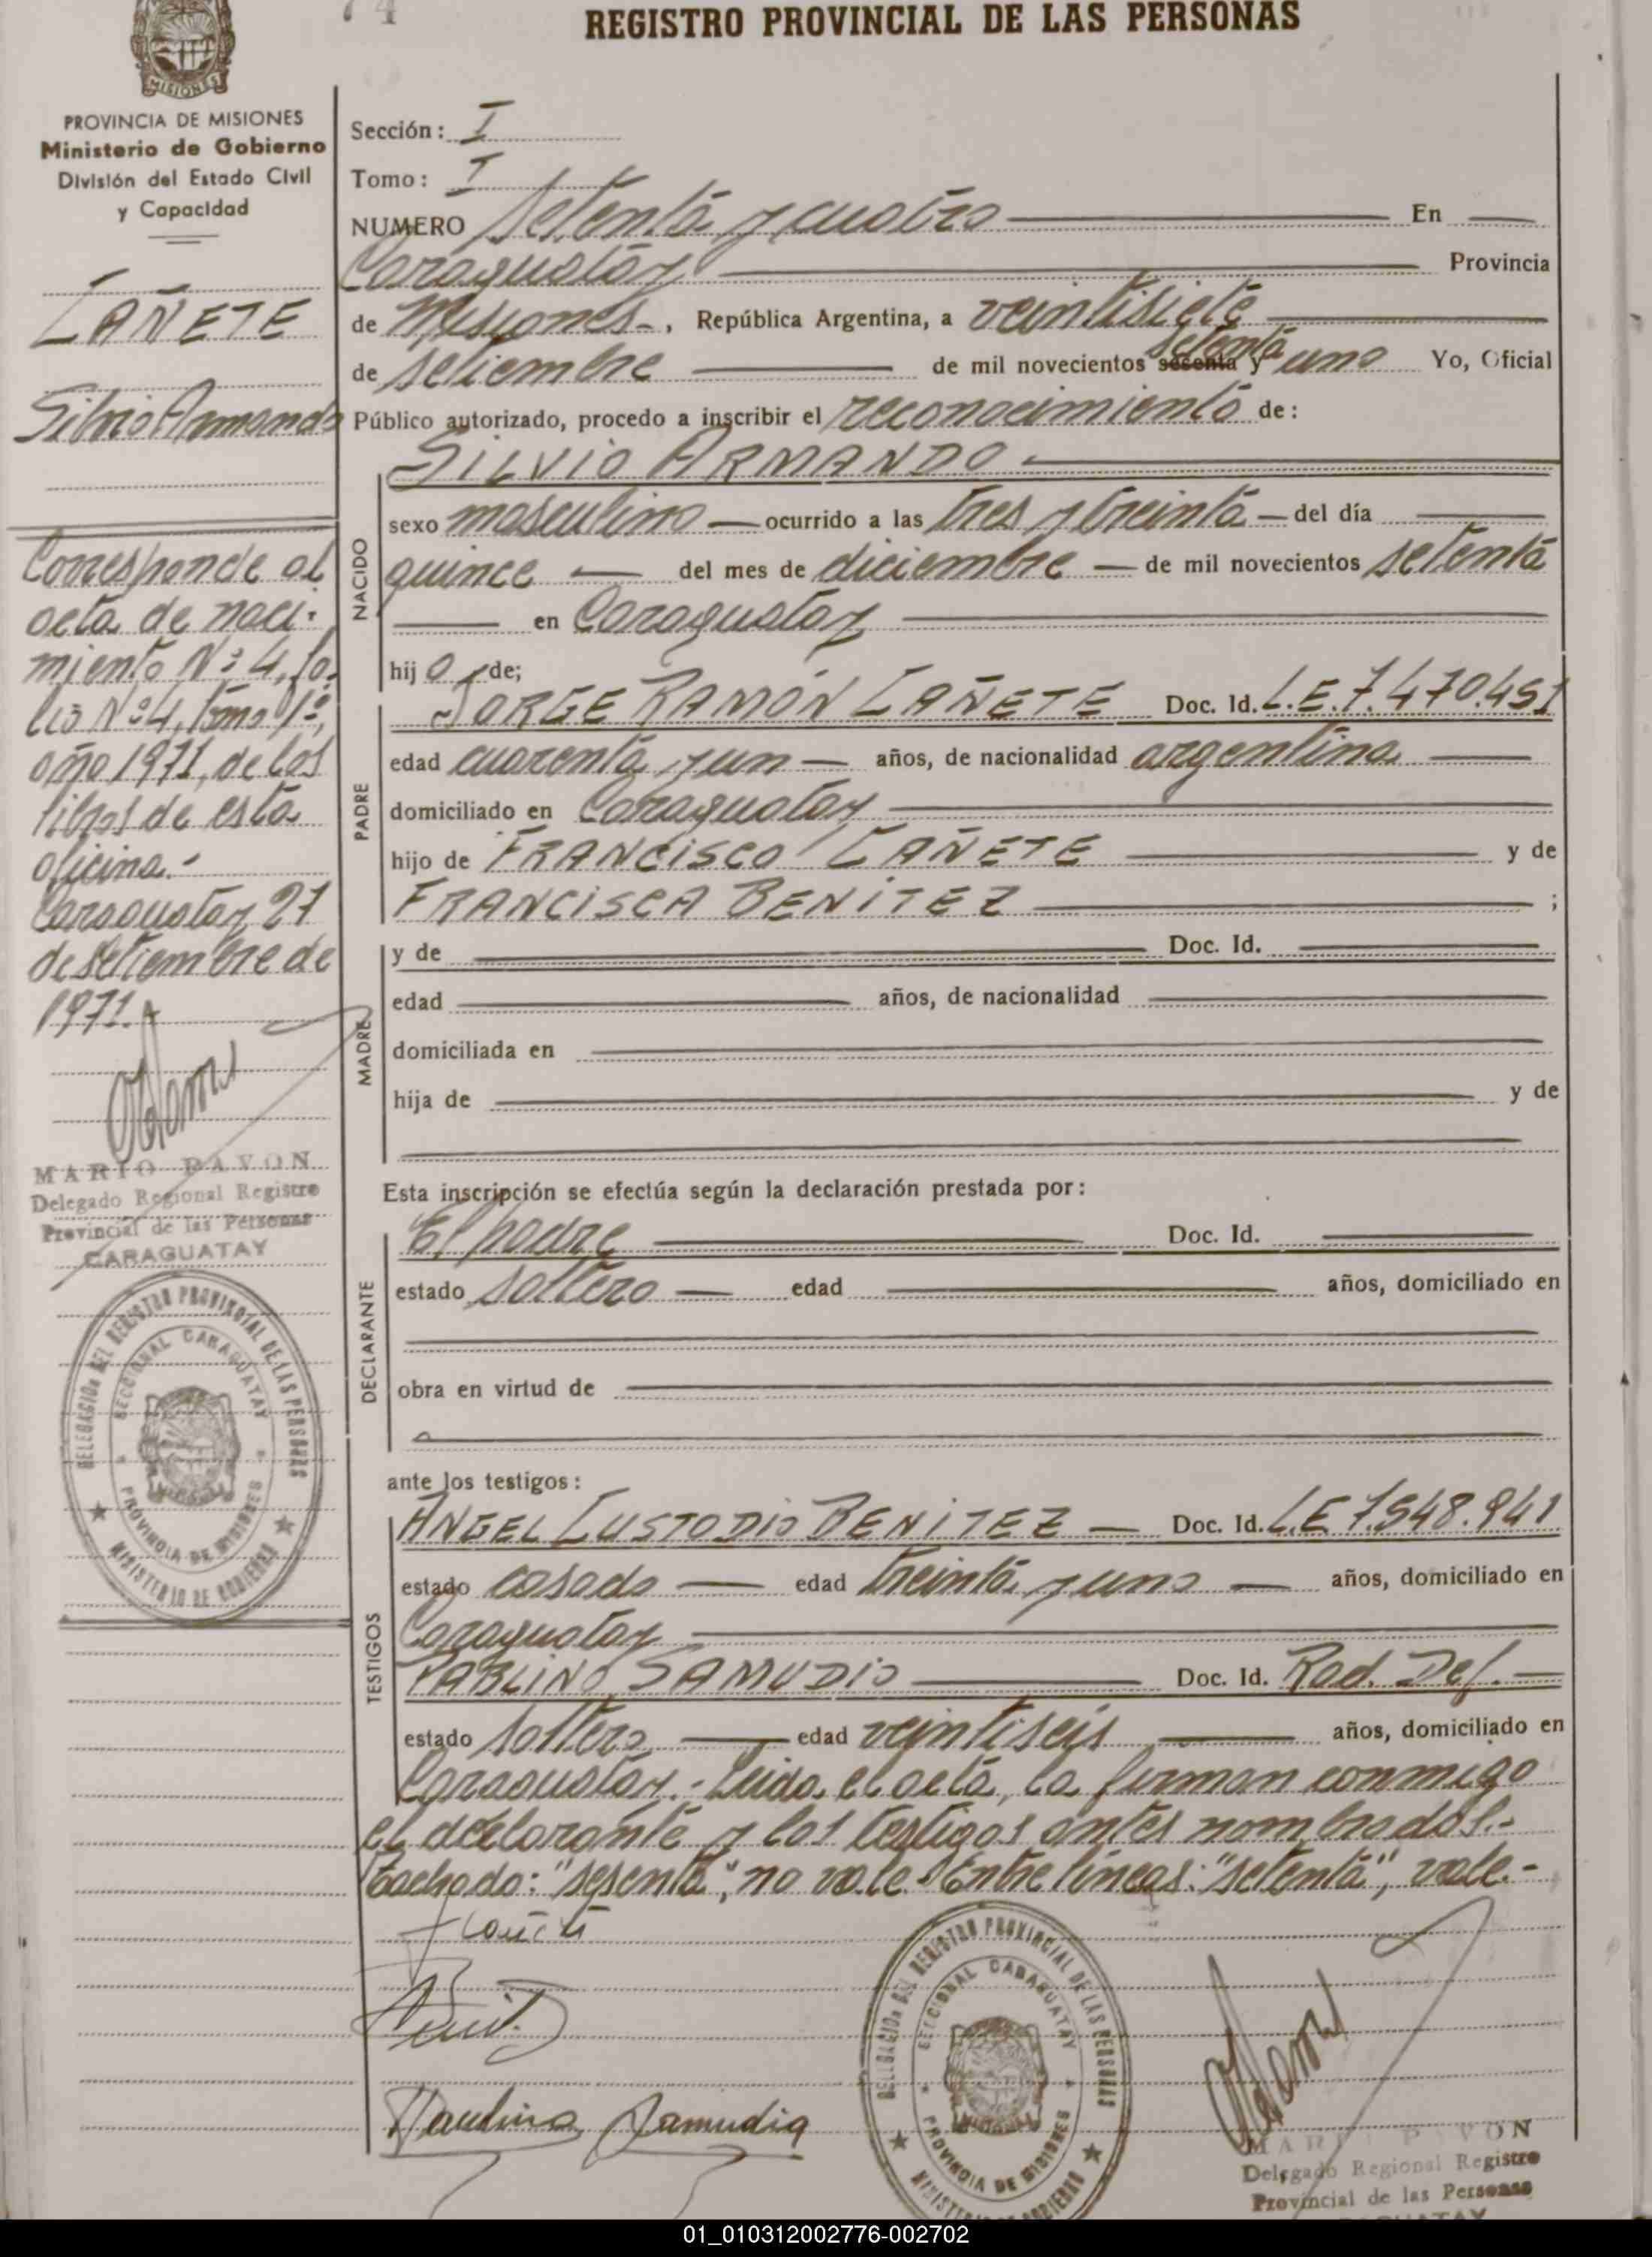 74
REGISTRO PROVINCIAL DE LAS PERSONAS
MISIONES
PROVINCIA DE MISIONES
Ministerio de Gobierno
División del Estado Civil
y Capacidad
CAÑETE
Silvio Armando
Corresponde al
acta de naci-
miento Nº 4, fo-
lio Nº 4, Tomo 1º,
año 1971, de los
libros de esta
oficina.-
Caraguatay 27
de setiembre de
1971.-
MARIO PAVON
Delegado Regional Registro
Provincial de las Personas
CARAGUATAY
DELEGACION DEL REGISTRO PROVINCIAL DE LAS PERSONAS
SECCIONAL CARAGUATAY
PROVINCIA DE MISIONES
MINISTERIO DE GOBIERNO
Sección: I
Tomo: I
NUMERO Setenta y cuatro En
Caraguatay Provincia
de Misiones-, República Argentina, a veintisiete
setenta
de setiembre de mil novecientos sesenta y uno Yo, Oficial
Público autorizado, procedo a inscribir el reconocimiento de:
SILVIO ARMANDO.
NACIDO
sexo masculino ocurrido a las tres y treinta del día
quince del mes de diciembre de mil novecientos setenta
en Caraguatay
hijo de;
PADRE
JORGE RAMÓN CAÑETE Doc. Id. L.E.7.470.451
edad cuarenta y un años, de nacionalidad argentina
domiciliado en Caraguatay
hijo de FRANCISCO CAÑETE y de
FRANCISCA BENÍTEZ ;
MADRE
y de Doc. Id.
edad años, de nacionalidad
domiciliada en
hija de y de
Esta inscripción se efectúa según la declaración prestada por:
DECLARANTE
El padre Doc. Id.
estado soltero edad años, domiciliado en
obra en virtud de
ante los testigos:
TESTIGOS
ANGEL CUSTODIO BENÍTEZ Doc. Id. L.E. 7.548.941
estado casado edad treinta y uno años, domiciliado en
Caraguatay
PABLINO SAMUDIO Doc. Id. Rad. Def.
estado soltero edad veintiseis años, domiciliado en
Caraguatay.- Leida el acta, la firman conmigo
el declarante y los testigos antes nombrados.-
Tachado: "sesenta", no vale.- Entre líneas: "setenta", vale.-
Paulino Samudio
DELEGACION DEL REGISTRO PROVINCIAL DE LAS PERSONAS
SECCIONAL CARAGUATAY
PROVINCIA DE MISIONES
MINISTERIO DE GOBIERNO
MARIO PAVON
Delegado Regional Registro
Provincial de las Personas
CARAGUATAY
01_010312002776-002702